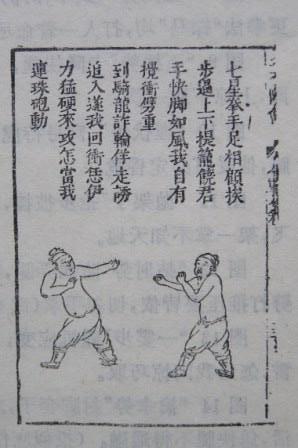 七星拳手足相顧挨
步逼上下提籠饒君
手快脚如風我自有
攪衝劈重
到騎龍詐輸佯走誘
追入遂我回衝恁伊
力猛硬來攻怎當我
連珠砲動